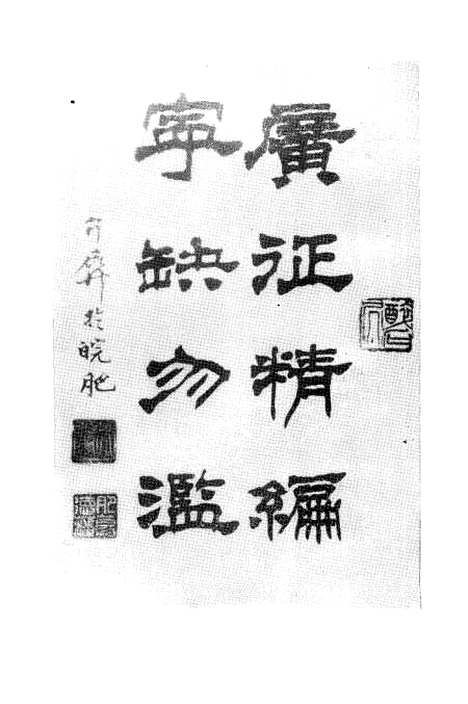 廣征精編
寧缺勿濫
於皖肥